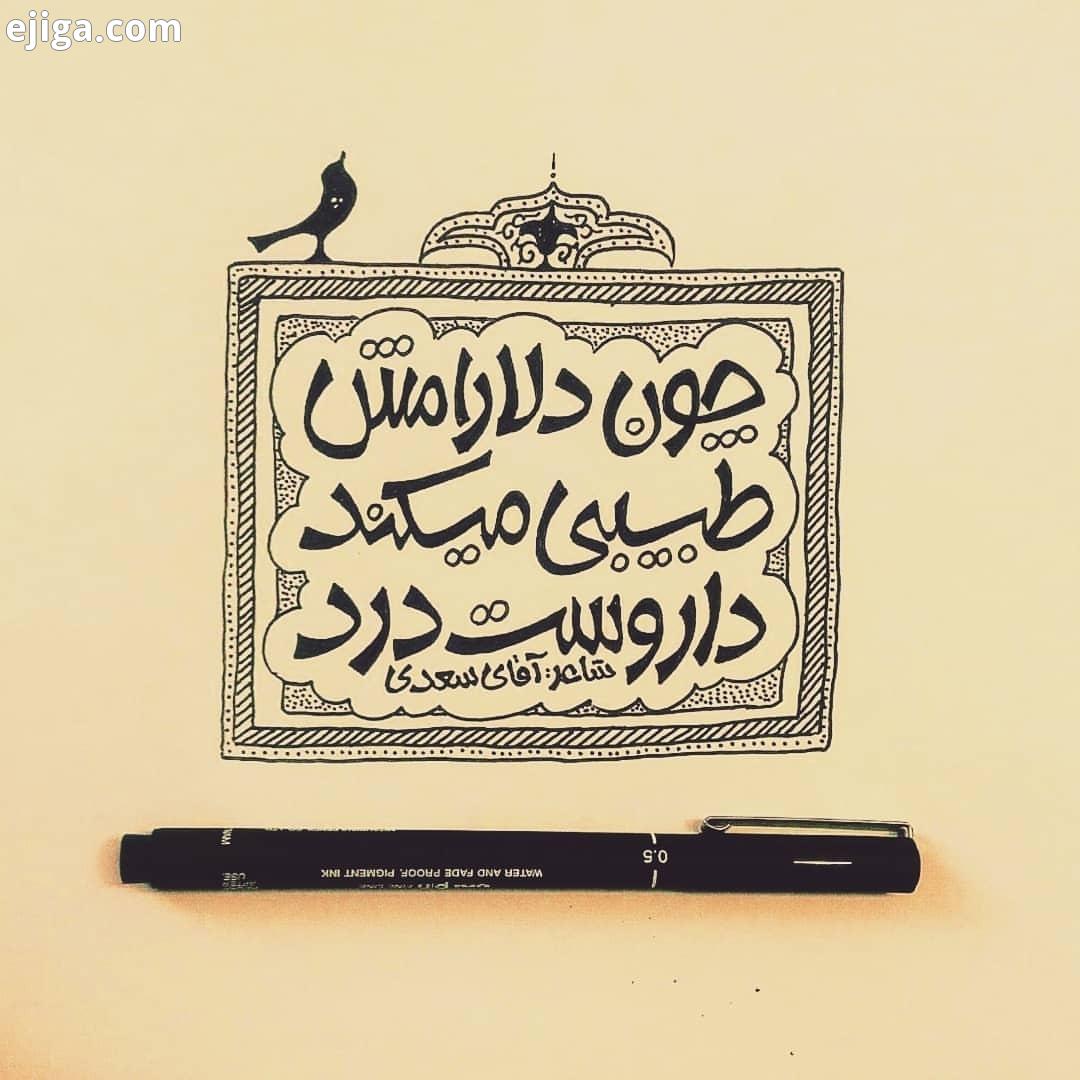 ejiga.com
چون دلارامش
طبیبی میکند
داروست درد
شاعر: آقای سعدی
0.5
WATER AND FADE PROOF, PIGMENT INK